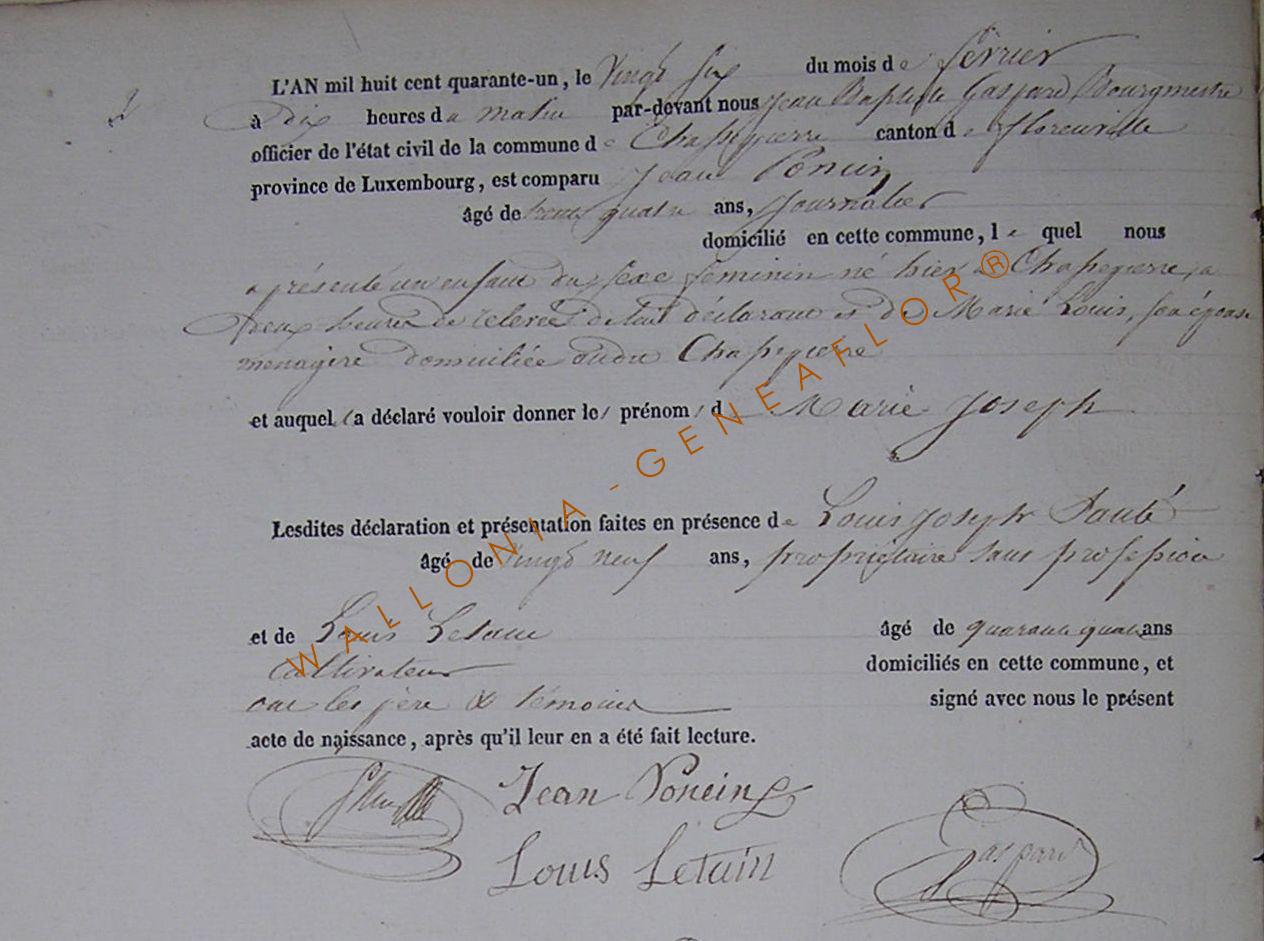 L'AN mil huit cent quarante-un, le vingt six du mois de février
à dix heures du matin par-devant nous Jean Baptiste Gaspard Bourgmestre
officier de l'état civil de la commune de Chassepierre canton de florenville
province de Luxembourg, est comparu Jean Poncin
âgé de trente quatre ans, Journalier
domicilié en cette commune, le quel nous
a présenté un enfant du sexe féminin né hier à Chassepierre, a
deux heures de relevée de lui déclarant et de Marie Louis, son épouse
menagère domiciliée audit Chassepierre
et auquel il a déclaré vouloir donner le prénom de Marie Joseph
Lesdites déclaration et présentation faites en présence de Louis Joseph
âgé de vingt neuf ans, propriétaire sans profession
et de Louis Letain âgé de quarante quatre ans
Cultivateur domiciliés en cette commune, et
ont les père & témoins signé avec nous le présent
acte de naissance, après qu'il leur en a été fait lecture.
Jean Poncin
Louis Letain
Gaspard
WALLONIA - GENEAFLOR®